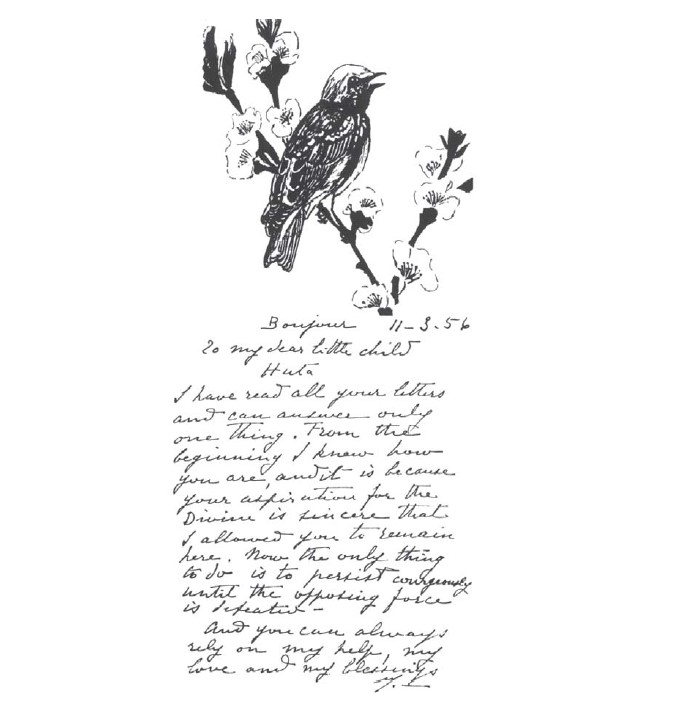 Bonjour 11-3-56
To my dear little child
Huta
I have read all your letters
and can answer only
one thing. From the
beginning I knew how
you are, and it is because
your aspiration for the
Divine is sincere that
I allowed you to remain
here. Now the only thing
to do is to persist courgeously
until the opposing force
is defeated -
And you can always
rely on my help, my
love and my blessings